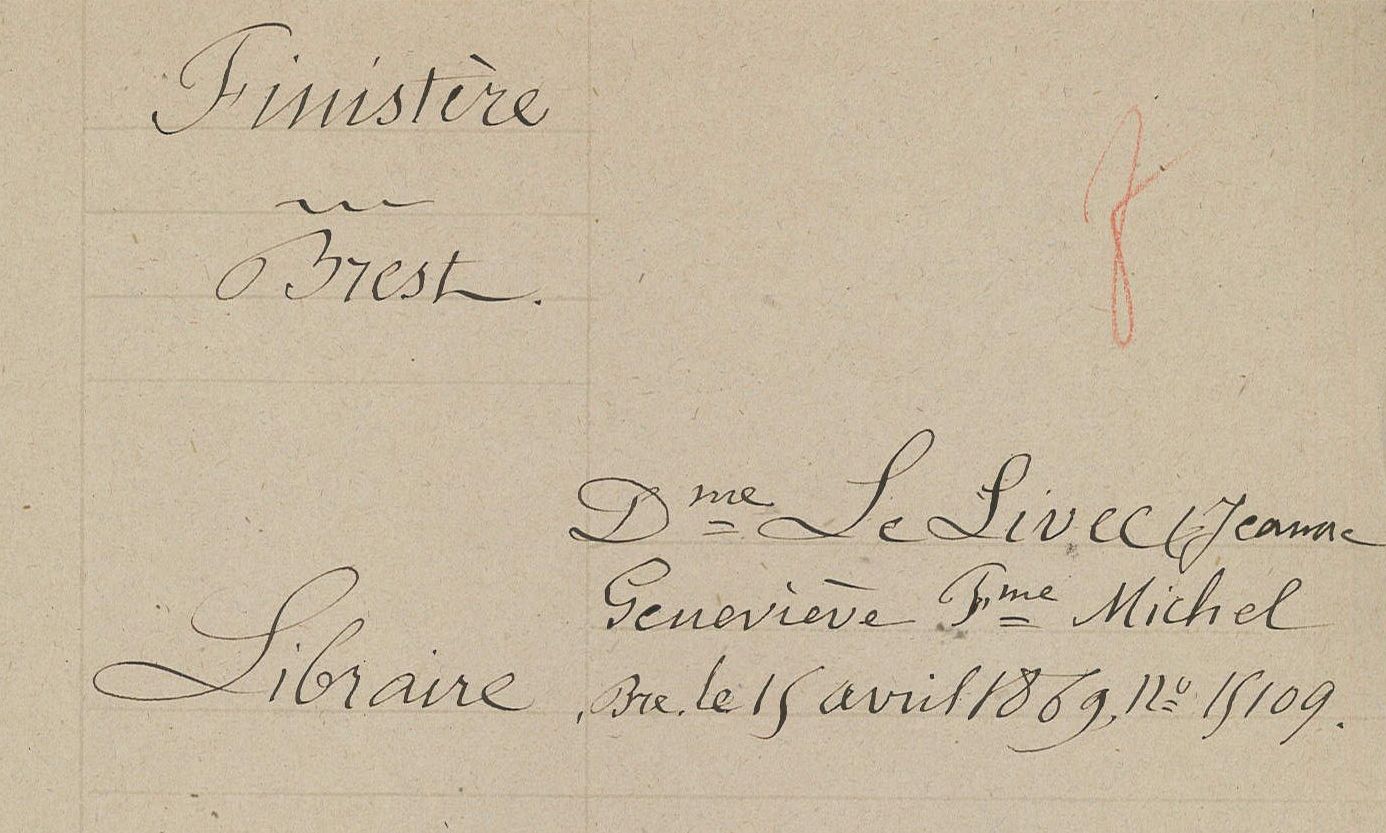 Finistère
Brest.
Dme Le Livec (Jeanne
Geneviève Fme Michel
Libraire
Bre. le 15 avril 1869, No 15109.